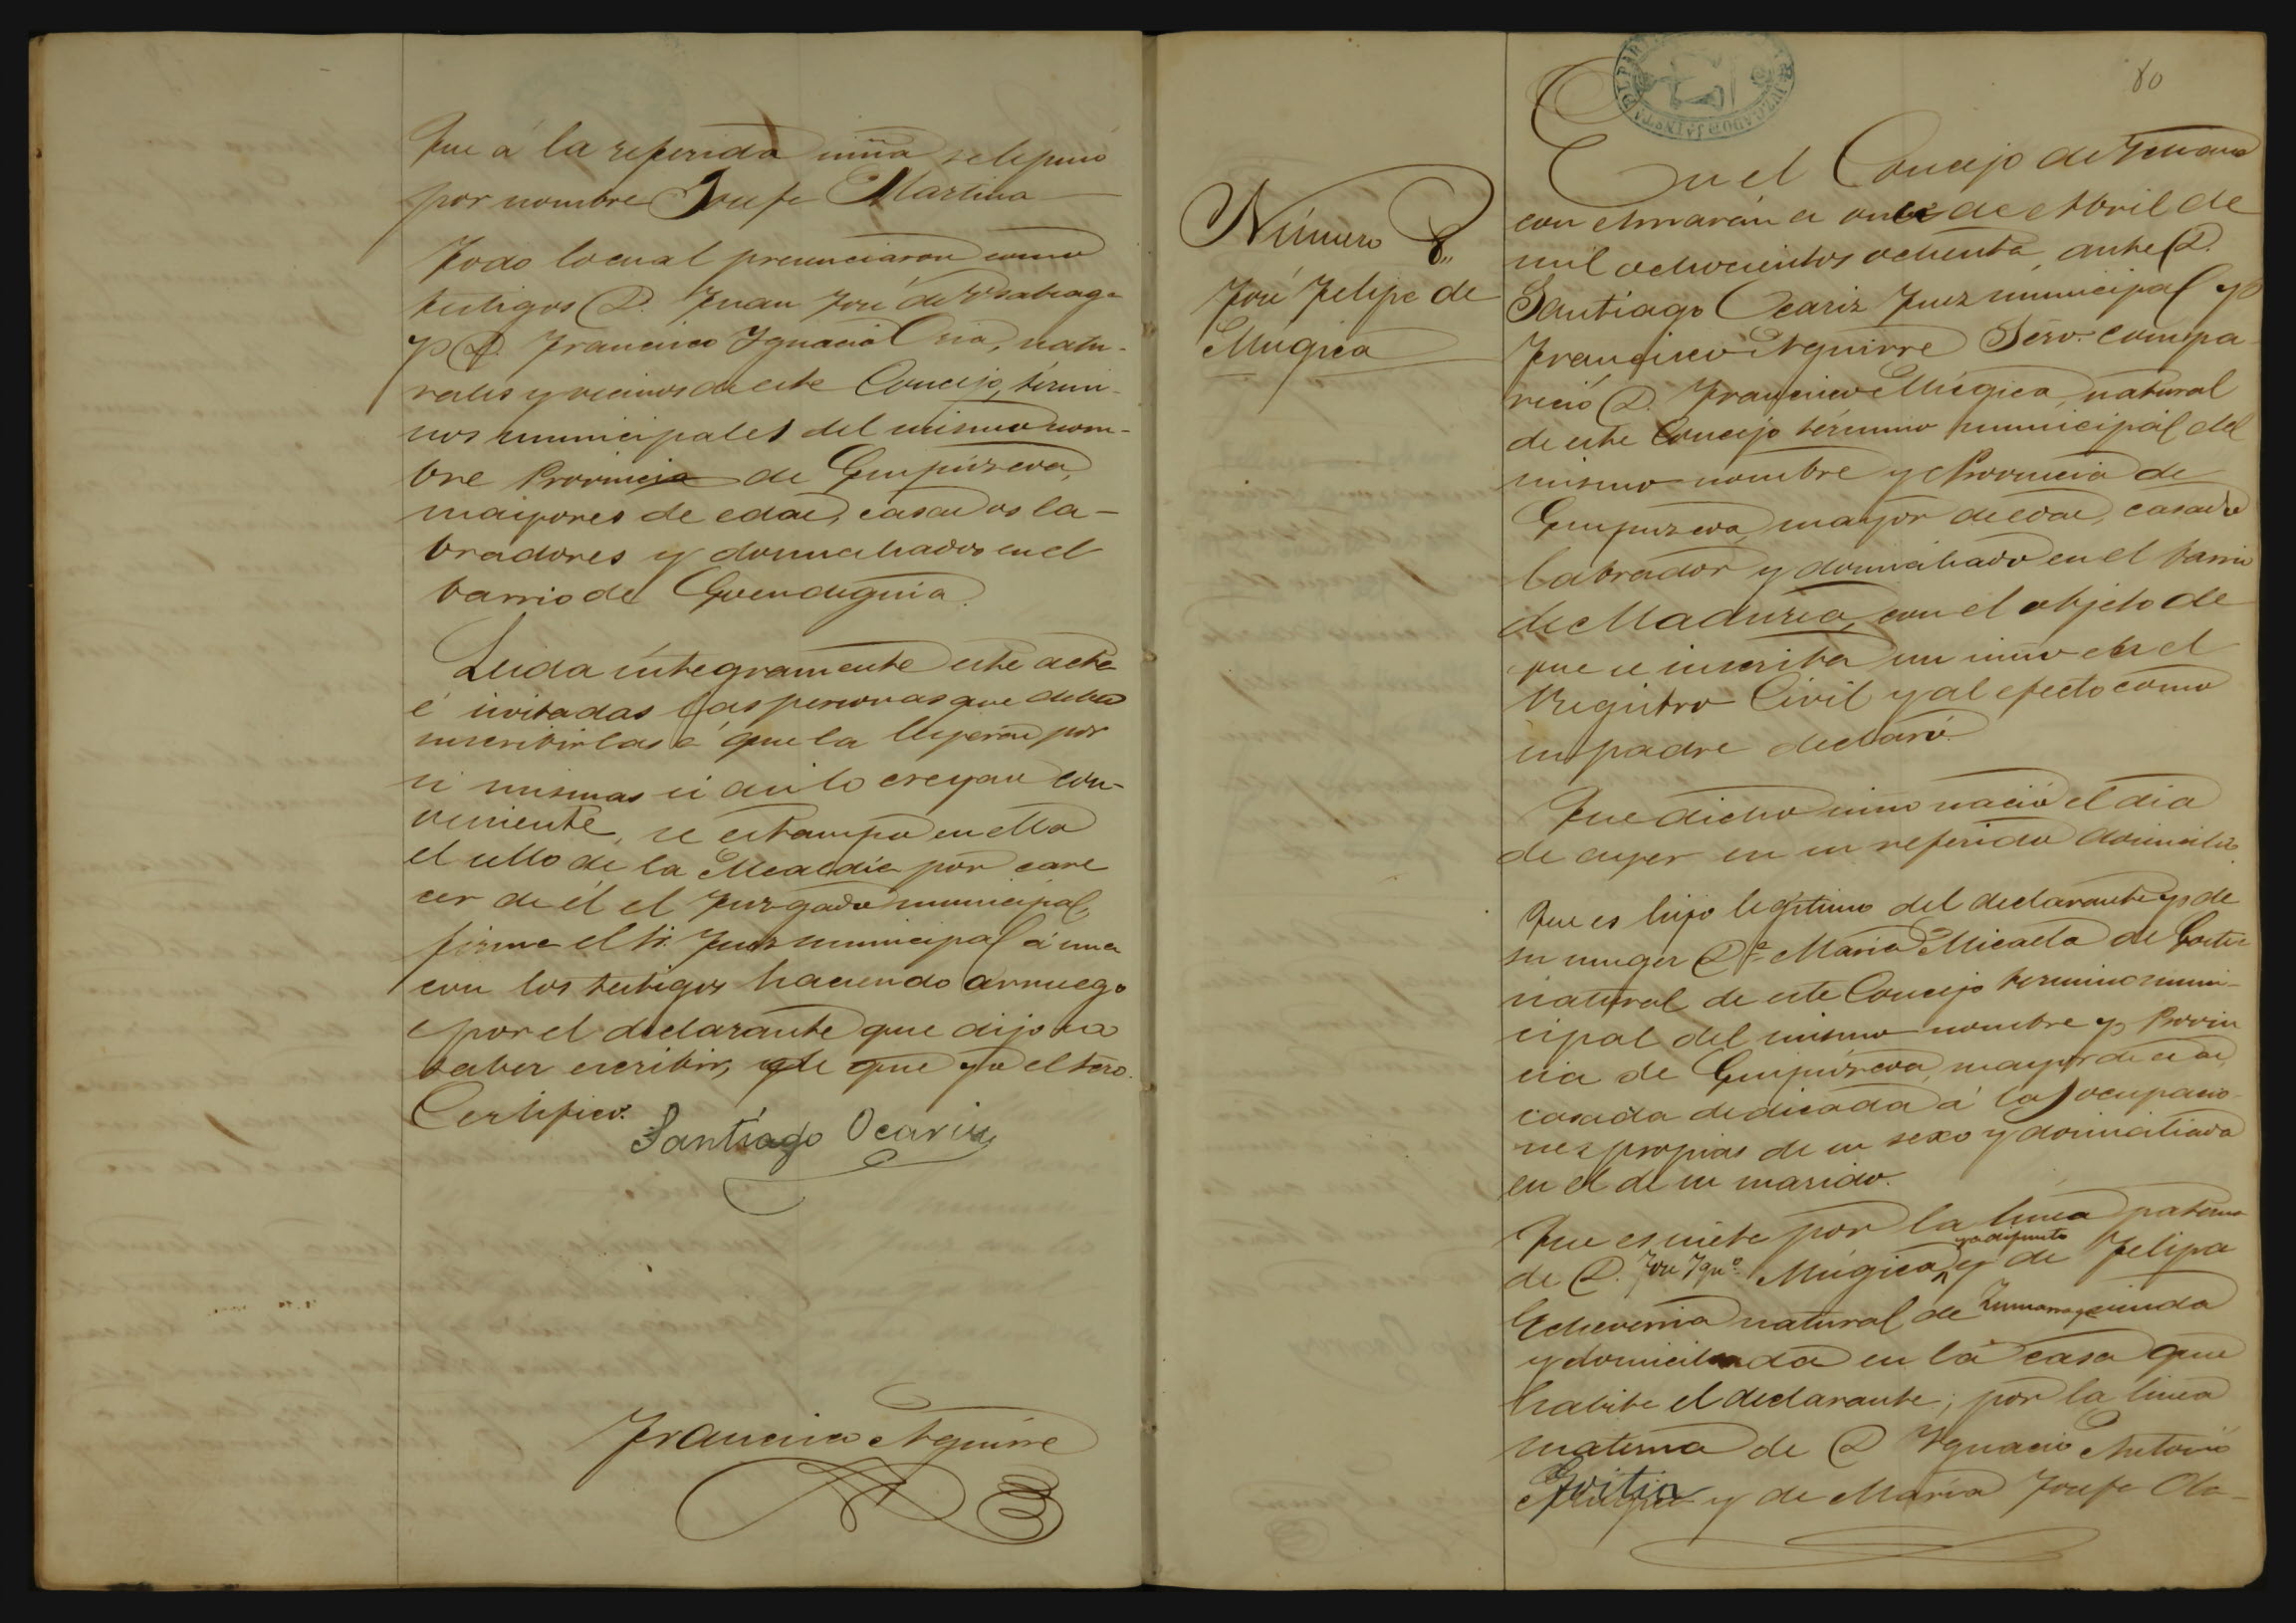 Que á la referida niña se le puso
por nombre Josefa Martina
Todo lo cual presenciaron como
testigos D. Juan José de Usabiaga
y D. Francisco Ygnacio Oria, natu-
rales y vecinos de este Concejo, térmi-
nos municipales del mismo nom-
bre Provincia de Guipúzcoa,
maiyores de edad, casados la-
bradores y domiciliados en el
barrio de
Leida íntegramente este acta
é invitadas las personas que deben
suscribirlas á que la leyeran por
si mismas si asi lo creyan con-
veniente, se estampó en ella
el sello de la Alcaldía por care
cer de él el Juzgado municipal,
firma el Sr. Juez municipal á una
con los testigos haciendo arruego
por el declarante que dijo no
saber escribir, y de que yo el Srio.
Certifico.
Santiago Ocariz
Francisco Aguirre
80
JUZGADO
Número 8,,
José Felipe de
Mugica
En el Concejo de
con Amarán a once de Abril de
mil ochocientos ochenta, ante D.
Santiago Ocariz Juez municipal y
Francisco Aguirre Srio. compa
reció D. Francisco Múgica, natural
de este Concejo término municipal del
mismo nombre y Provincia de
Guipuzcoa, mayor de edad, casado
labrador y domiciliado en el barrio
de con el objeto de
que se inscriba un niño en el
Registro Civil y al efecto como
su padre declaró.
Que dicho niño nació el día
de ayer en su referido domicilio.
Que es hijo legítimo del declarante y de
su muger D.ª Maria Micaela de Goitia
natural de este Concejo termino muni-
cipal del mismo nombre y Provin
cia de Guipúzcoa, mayor de edad,
casada dedicada á las ocupacio-
nes propias de su sexo y domiciliada
en el de su marido.
Que es nieto por la línea paterna
de D. José Ygn.º Múgica ya difunto y de Felipa
Echeverria natural de Zumarraga viuda
y domiciliada en la casa que
habita el declarante; por la linea
materna de D Ygnacio Antonio
Goitia y de María Josefa Ola-